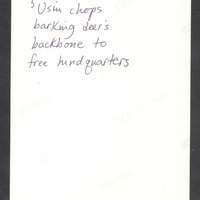 Usin chops
barking deer's
backbone to
free hindquarters